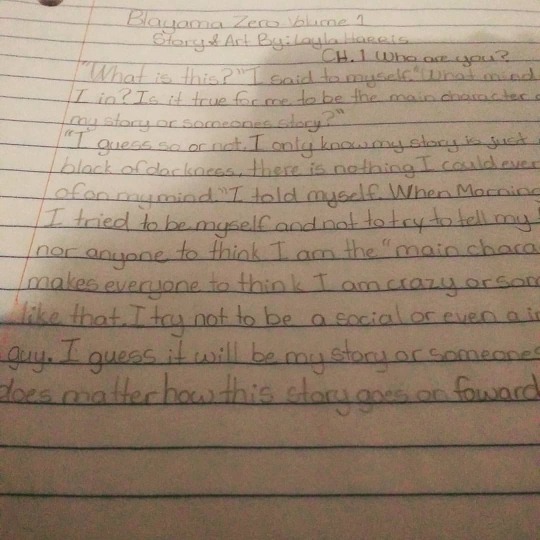 Blayama Zero Volume 1
Story & Art By: Layla Harris
CH. 1 Who are you?
"What is this?" "I said to myself." What mind
I in? Is it true for me to be the main character
my story or someones story?"
"I guess so or not. I only know my story is just
black of darkness. there is nothing I could ever
of on my mind. "I told myself. When Morning
I tried to be myself and not to try to tell my
nor anyone to think I am the "main chara
makes everyone to think I am crazy or som
like that. I try not to be a social or even a
guy. I guess it will be my story or someones
does matter how this story goes on foward